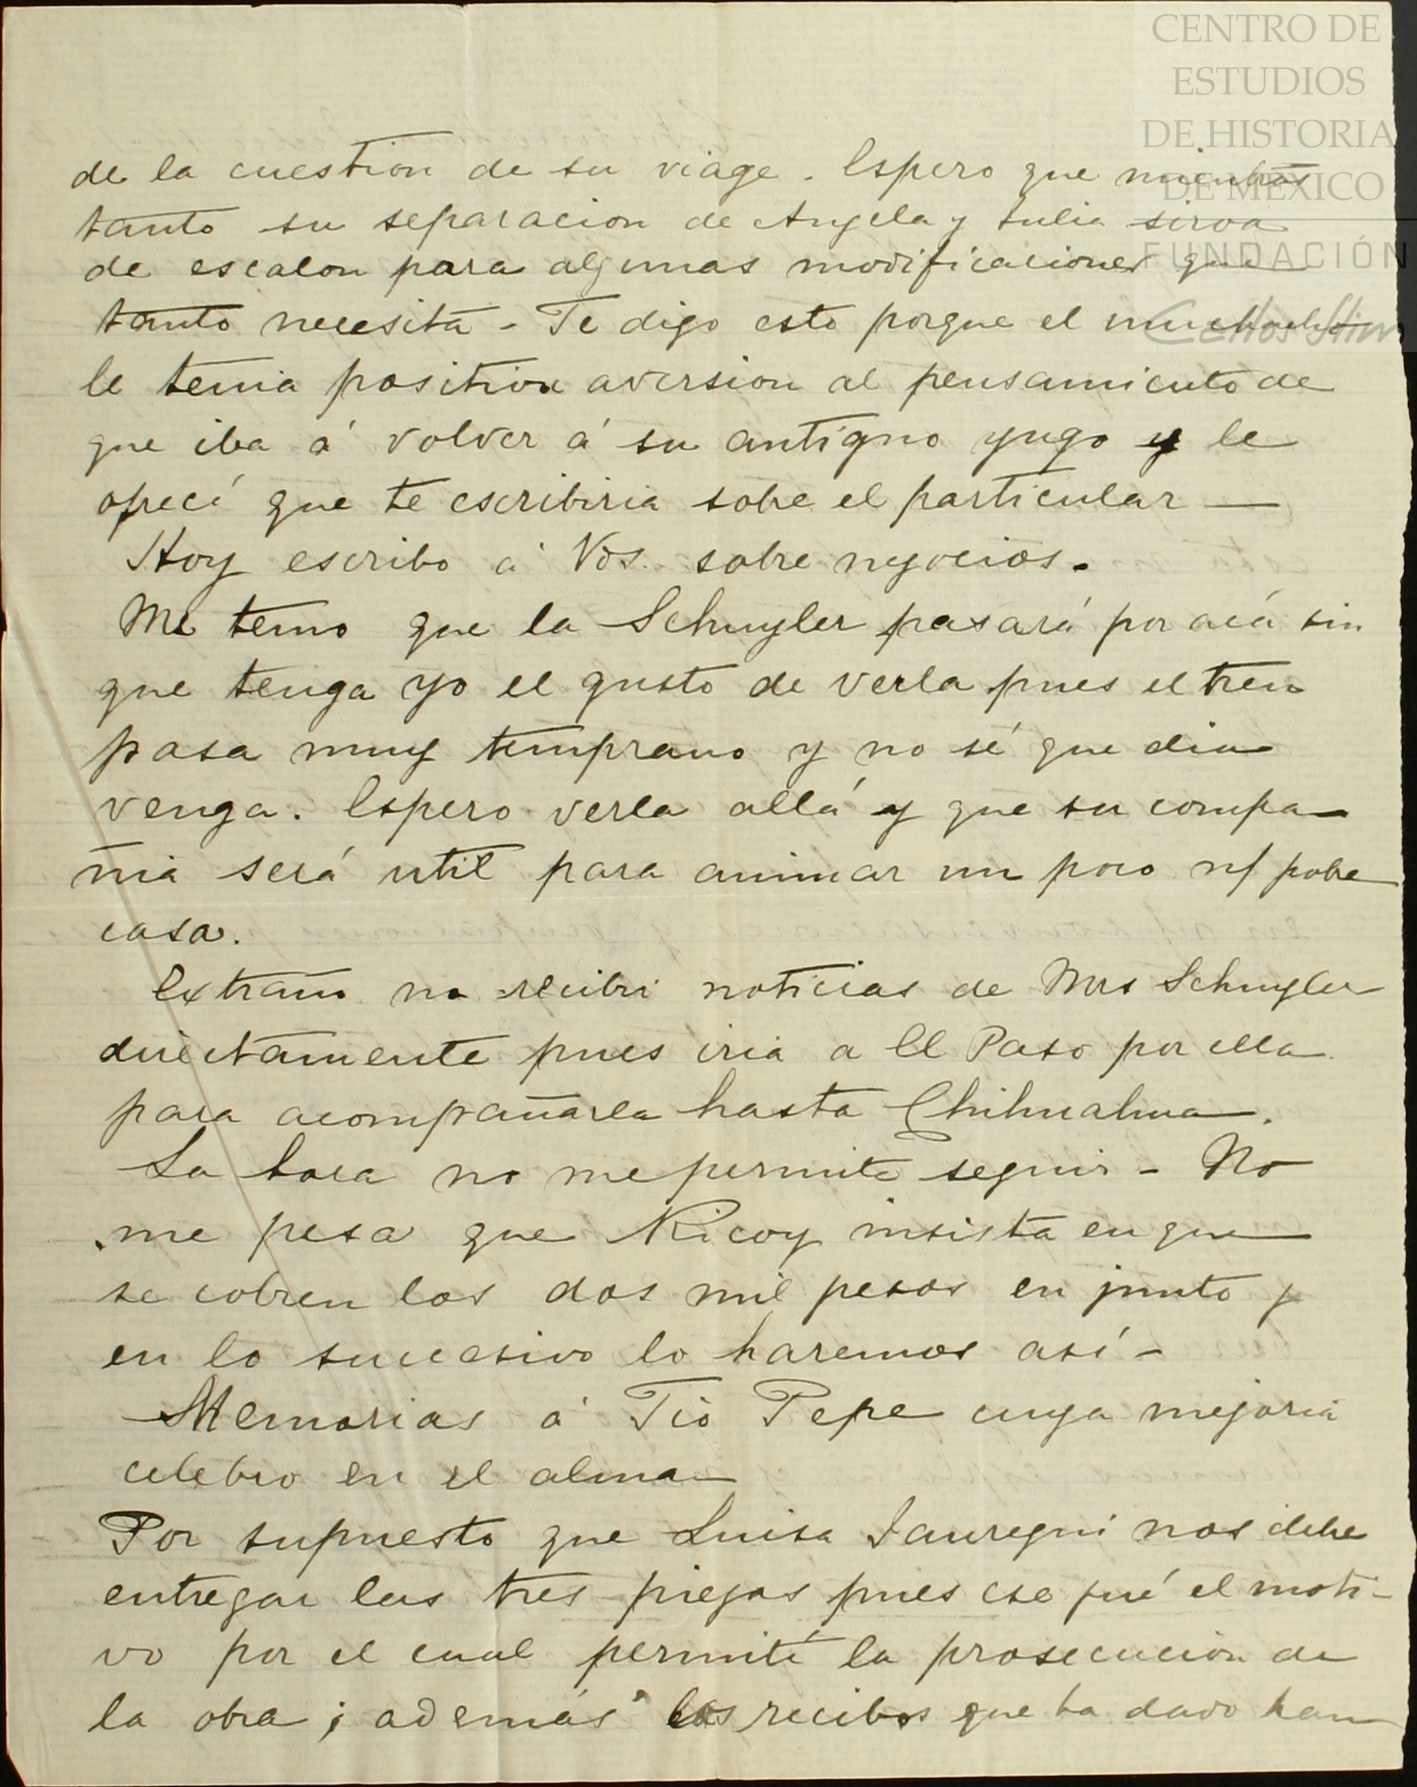 CENTRO DE
ESTUDIOS
DE HISTORIA
DE MÉXICO
FUNDACIÓN
Carlos Slim
de la cuestion de su viage. Espero que mientras
tanto su separacion de Angela y Julia sirva
de escalon para algunas modificaciones que
tanto necesita - Te digo esto porque el muchacho
le tenia positiva aversion al pensamiento de
que iba á volver á su antiguo yugo y le
ofrecí que te escribiria sobre el particular —
Hoy escribo á Vds. sobre negocios.
Me temo que la Schuyler pasará por acá sin
que tenga yo el gusto de verla pues el tren
pasa muy temprano y no sé que dia
venga. Espero verla allá y que su compa-
ñia será util para animar un poco n/ pobre
casa.
Extraño no recibir noticias de Mrs Schuyler
directamente pues iria a El Paso por ella
para acompañarla hasta Chihuahua.
La hora no me permite seguir - No
me pesa que Ricoy insista en que
se cobren los dos mil pesos en junto y
en lo sucesivo lo haremos así -
Memorias á Tio Pepe cuya mejoria
celebro en el alma
Por supuesto que Luisa Jauregui nos debe
entregar las tres piezas pues ese fué el moti-
vo por el cual permití la prosecucion de
la obra; además los recibos que ha dado han